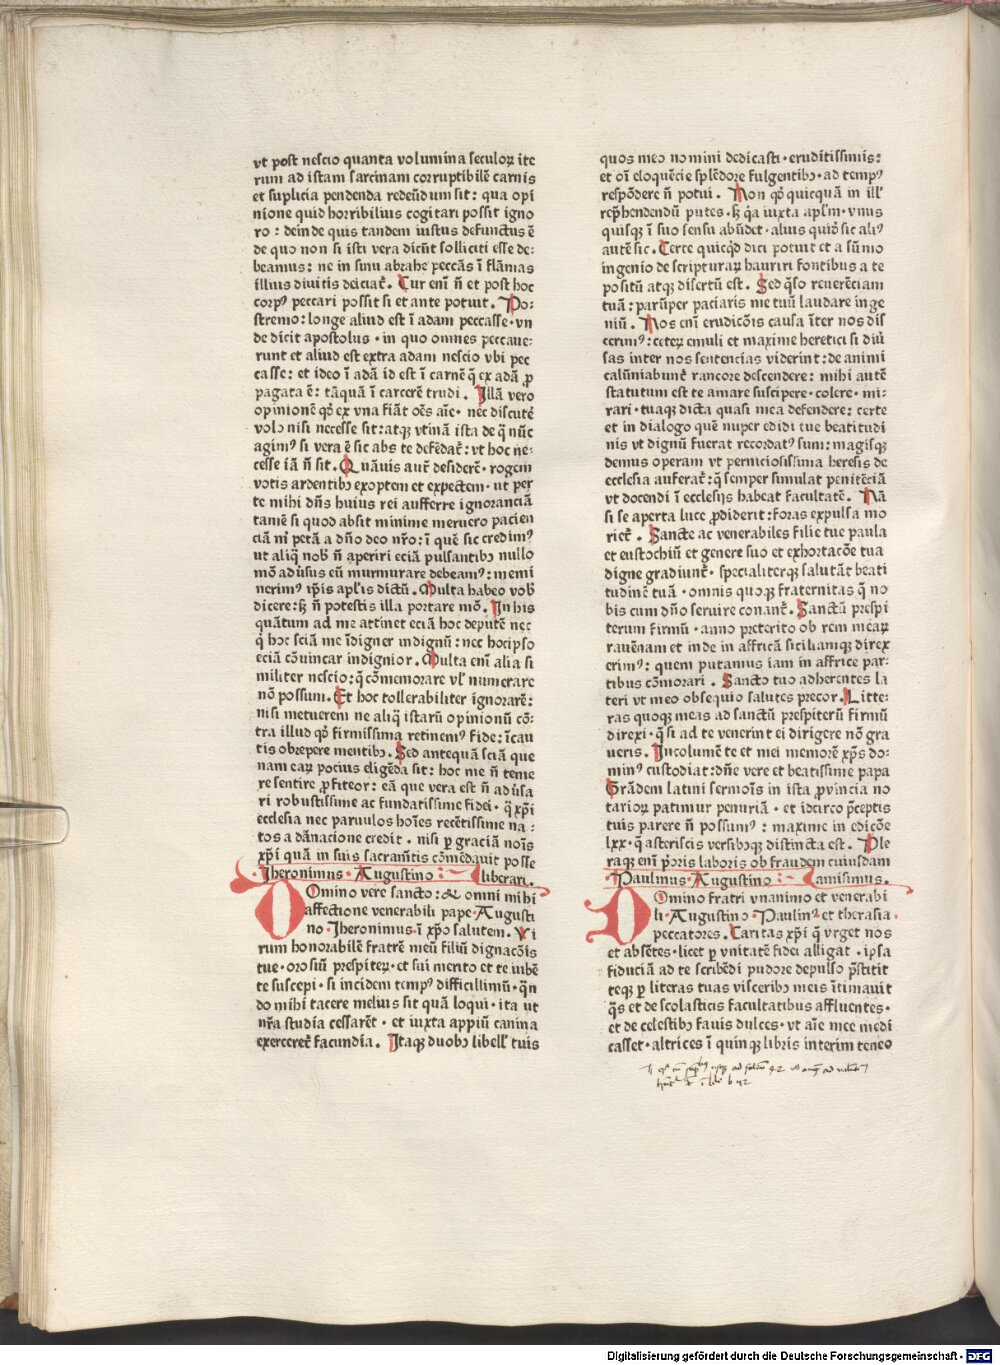 vt post nescio quanta volumina seculoꝝ ite
rum ad istam sarcinam corruptibilē carnis
et suplicia pendenda redeūdum sit: qua opi
nione quid horribilius cogitari possit igno
ro: deinde quis tandem iustus defunctus ē
de quo non si isti vera dicūt solliciti esse de-
beamus: ne in sinu abrahe peccās ī flāmas
illius diuitis deiciat᷑. Cur enī n̄ et post hoc
corpꝰ peccari possit si et ante potuit. Po-
stremo: longe aliud est ī adam peccasse· vn
de dicit apostolus · in quo omnes peccaue-
runt et aliud est extra adam nescio vbi pec
casse: et ideo ī adā id est ī carnē q̄ ex adā ꝓ
pagata ē: tāquā ī carcerē trudi. Illā vero
opinionē qꝙ ex vna fiāt oēs aīe· nec discutē
volo nisi necesse sit: atqꝫ vtinā ista de q̄ nūc
agimꝰ si vera ē sic abs te defēdat᷑: vt hoc ne-
cesse iā n̄ sit. Quāuis aut̄ desiderē· rogem
votis ardentibꝫ exoptem et expectem· ut per
te mihi dn̄s huius rei aufferre ignoranciā
tamē si quod absit minime meruero pacien
ciā m̄ petā a dn̄o deo nr̄o: ī quē sic credimꝰ
ut aliq̄ nob̄ n̄ aperiri eciā pulsantibꝫ nullo
mō adūsus eū murmurare debeamꝰ: memi
nerimꝰ ip̄is apl̄is dictū. Multa habeo vob̄
dicere: sꝫ n̄ potestis illa portare mō. In his
quātum ad me attinet eciā hoc deputē nec
q̇ hoc sciā me īdigner indignū: nec hocipso
eciā cōuincar indignior. Multa enī alia si
militer nescio: q̄ cōmemorare vl̓ numerare
nō possum. Et hoc tollerabiliter ignorarē:
nisi metuerem ne aliq̄ istarū opinionū cō-
tra illud qꝙ firmissima retinemꝰ fide: īcau
tis obrepere mentibꝫ. Sed antequā sciā que
nam eaꝝ pocius eligēda sit: hoc me n̄ teme
re sentire ꝓfiteor: eā que vera est n̄ adūsa
ri robustissime ac fundatissime fidei· q̄ xp̄i
ecclesia nec paruulos hoīes recētissime na-
tos a dānacione credit· nisi ꝑ graciā noīs
xp̄i quā in suis sacram̄tis cōmēdauit posse
Iheronimus· Augustino :~ liberari.
Domino vere sancto: ⁊ omni mihi
affectione venerabili pape· Augusti
no· Iheronimus· ī xp̄o salutem. Vi
rum honorabilē fratrē meū filiū dignacōis
tue· oro siū prespiteꝝ· et sui merito et te iubē
te suscepi· si incidem tempꝰ difficillimū· q̄n
do mihi tacere melius sit quā loqui· ita ut
nr̄a studia cessarēt· et iuxta appiū canina
exerceret᷑ facundia. Itaqꝫ duobꝫ libell̓ tuis
quos meo nomini dedicasti· eruditissimis:
et oī eloquēcie splēdore fulgentibꝫ· ad tempꝰ
respōdere n̄ potui. Non qꝙ quicquā in ill̓
rep̄hendendū putes· sꝫ q̄a iuxta apl̄m· vnus
quisqꝫ ī suo sensu abūdet· alius quiꝺ̓ sic aliꝰ
autē sic. Certe quicq̄d dici potuit et a sūmo
ingenio de scripturaꝝ hauriri fontibus a te
positū atqꝫ disertū est. Sed q̄so reuerēciam
tuā: parūper paciaris me tuū laudare inge
niū. Nos enī erudicōis causa īter nos dis
cerimꝰ: ceteꝝ emuli et maxime heretici si diū
sas inter nos sentencias viderint: de animi
calūniabunt᷑ rancore descendere: mihi autē
statutum est te amare suscipere· colere· mi-
rari· tuaqꝫ dicta quasi mea defendere: certe
et in dialogo quē nuper edidi tue beatitudi
nis vt dignū fuerat recordatꝰ sum: magisqꝫ
demus operam vt perniciosissima heresis de
ecclesia auferat᷑: q̄ semper simulat penitēciā
vt docendi ī ecclesijs habeat facultatē. Nā
si se aperta luce ꝓdiderit: foras expulsa mo
riet᷑. Sancte ac venerabiles filie tue paula
et eustochiū et genere suo et exhortacōe tua
digne gradiunt᷑· specialiterqꝫ salutāt beati
tudinē tuā· omnis quoqꝫ fraternitas q̄ no
bis cum dn̄o seruire conant᷑. Sanctū prespi
terum firmū· anno preterito ob rem meaꝝ
rauēnam et inde in affricā siciliamqꝫ direx
erimꝰ: quem putamus iam in affrice par-
tibus cōmorari. Sancto tuo adherentes la
teri vt meo obsequio salutes precor. Litte-
ras quoqꝫ meas ad sanctū prespiterū firmū
direxi· q̄ si ad te venerint ei dirigere nō gra
ueris. Incolumē te et mei memorē xp̄s do-
minꝰ custodiat: dn̄e vere et beatissime papa
Grādem latini sermoīs in ista ꝓvincia no
tarioꝝ patimur penuriā· et idcirco p̄ceptis
tuis parere n̄ possumꝰ: maxime in edicōe
lxx· q̄ asteriscis versibꝫqꝫ distincta est. Ple
raqꝫ enī p̄oris laboris ob fraudem cuiusdam
Paulinus· Augustino :~ amisimus.
Domino fratri vnanimo et venerabi
li· Augustino· Paulinꝰ et therasia·
peccatores. Caritas xp̄i q̄ vrget nos
et absētes· licet ꝑ vnitatē fidei alligat· ipsa
fiduciā ad te scribēdi pudore depulso p̄stitit
teqꝫ ꝑ literas tuas visceribꝫ meis ītimauit
q̄s et de scolasticis facultatibus affluentes·
et de celestibꝫ fauis dulces· vt aīe mee medi
casset· altrices ī quinqꝫ libris interim teneo